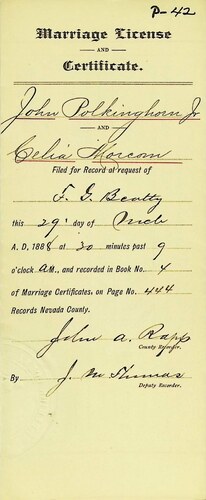 P-42
Marriage License
AND
Certificate.
John Polkinghorn Jr
AND
Celia Morcom
Filed for Record at request of
F. G. Beatty
this 29' day of Mch
A. D, 1888 at 30 minutes past 9
o'clock A.M., and recorded in Book No. 4
of Marriage Certificates, on Page No. 444
Records Nevada County.
John A. Rapp
County Recorder.
By J. M Thomas
Deputy Recorder.